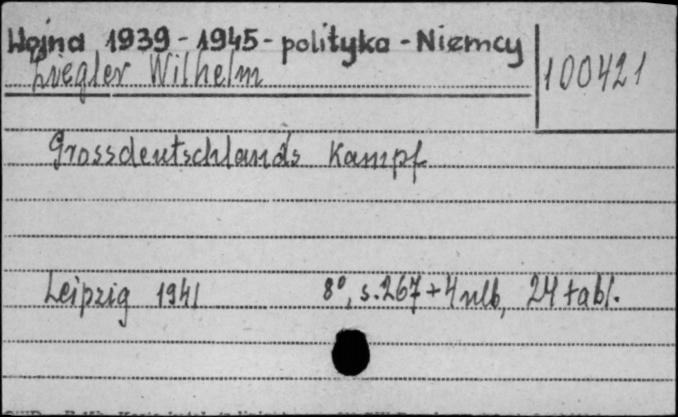 Wojna 1939-1945- polityka - Niemcy
Ziegler Wilhelm
100421
Grossdeutschlands Kampf
Leipzig 1941 8°, s.267+4nlb, 24 tabl.